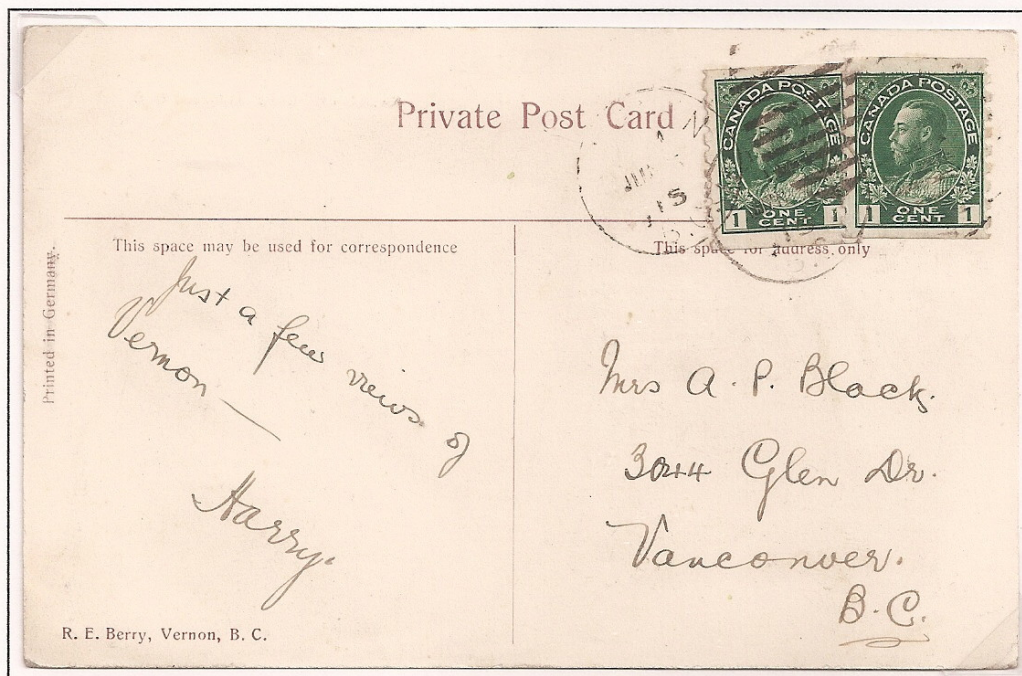 Private Post Card
CANADA POSTAGE
1 ONE CENT 1
CANADA POSTAGE
1 ONE CENT 1
15
This space may be used for correspondence
This space for address only
Printed in Germany.
Just a few views of
Vernon —
Harry.
Mrs A. P. Black.
3044 Glen Dr.
Vanconver.
B.C.
R. E. Berry, Vernon, B. C.